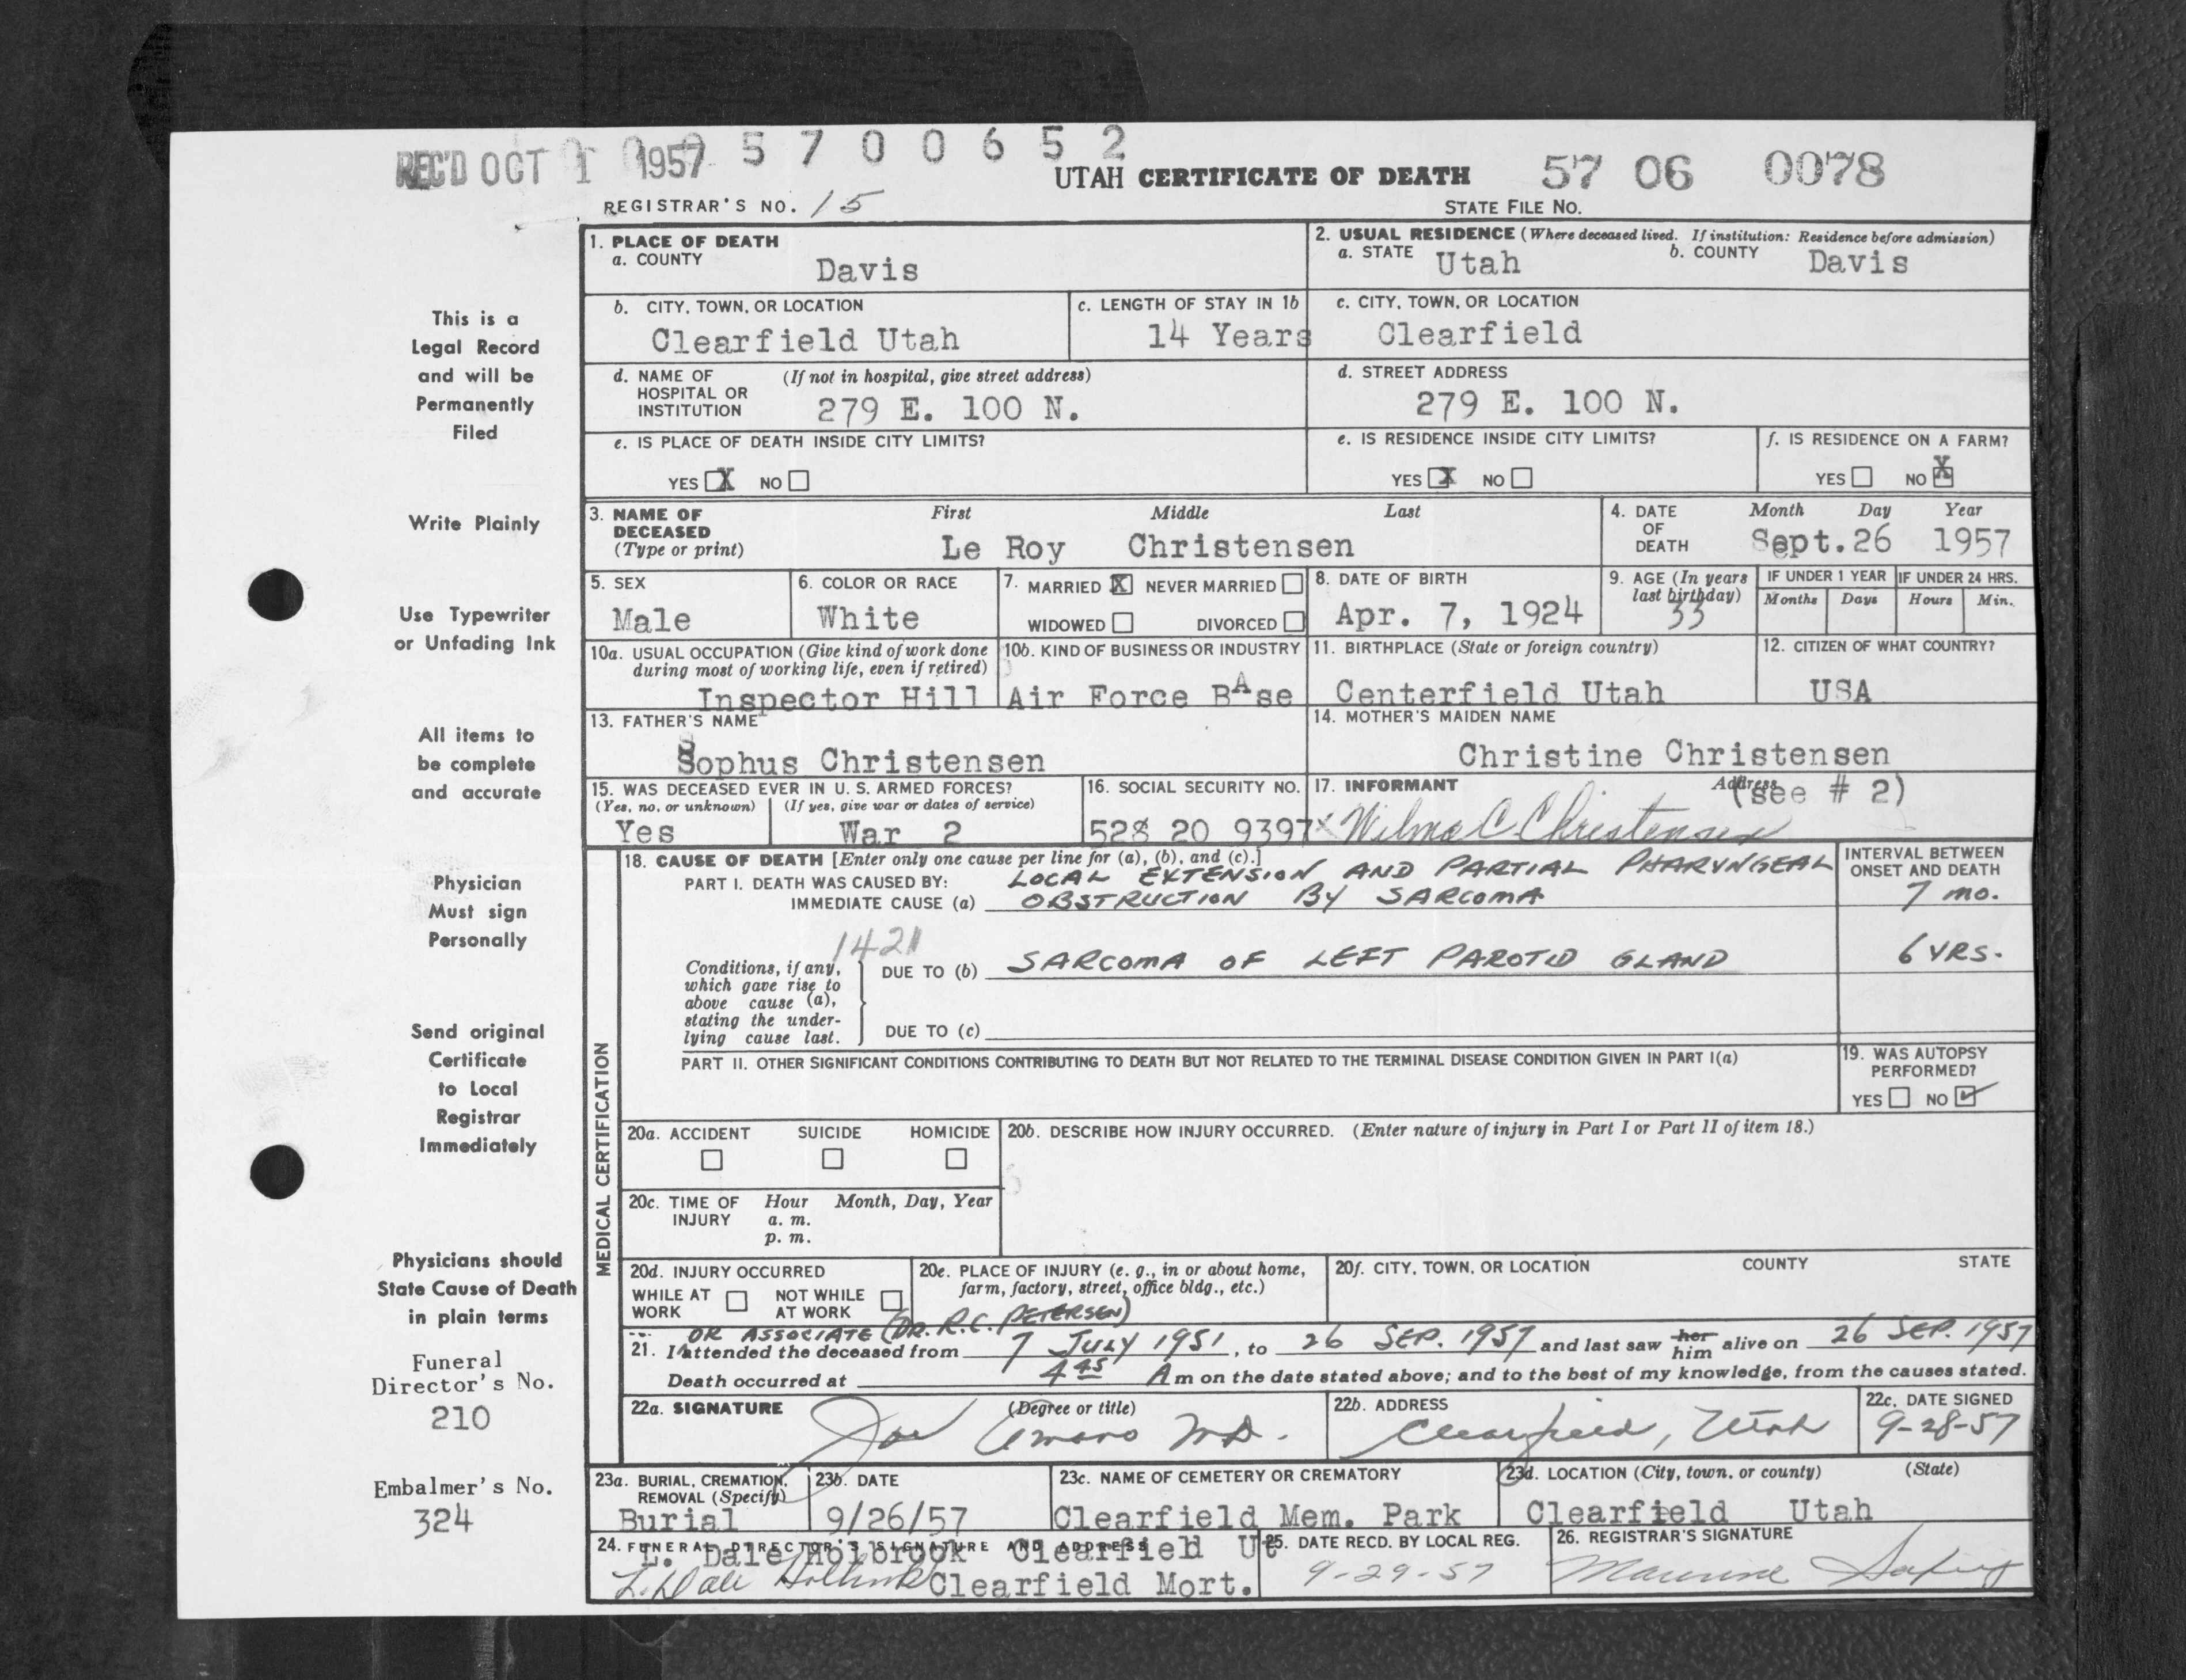 REC'D OCT 1 1957 5 7 0 0 6 5 2
UTAH CERTIFICATE OF DEATH 57 06 0078
REGISTRAR'S NO. 15 STATE FILE No.
This is a
Legal Record
and will be
Permanently
Filed
Write Plainly
Use Typewriter
or Unfading Ink
All items to
be complete
and accurate
Physician
Must sign
Personally
Send original
Certificate
to Local
Registrar
Immediately
Physicians should
State Cause of Death
in plain terms
Funeral
Director's No.
210
Embalmer's No.
324
1. PLACE OF DEATH
a. COUNTY
Davis
2. USUAL RESIDENCE (Where deceased lived. If institution: Residence before admission)
a. STATE Utah b. COUNTY Davis
b. CITY, TOWN, OR LOCATION
Clearfield Utah
c. LENGTH OF STAY IN 1b
14 Years
c. CITY, TOWN, OR LOCATION
Clearfield
d. NAME OF (If not in hospital, give street address)
HOSPITAL OR
INSTITUTION 279 E. 100 N.
d. STREET ADDRESS
279 E. 100 N.
e. IS PLACE OF DEATH INSIDE CITY LIMITS?
YES X NO
e. IS RESIDENCE INSIDE CITY LIMITS?
YES X NO
f. IS RESIDENCE ON A FARM?
YES NO X
3. NAME OF First Middle Last
DECEASED
(Type or print) Le Roy Christensen
4. DATE Month Day Year
OF
DEATH Sept. 26 1957
5. SEX
Male
6. COLOR OR RACE
White
7. MARRIED X NEVER MARRIED
WIDOWED DIVORCED
8. DATE OF BIRTH
Apr. 7, 1924
9. AGE (In years
last birthday)
33
IF UNDER 1 YEAR IF UNDER 24 HRS.
Months Days Hours Min.
10a. USUAL OCCUPATION (Give kind of work done
during most of working life, even if retired)
Inspector Hill
10b. KIND OF BUSINESS OR INDUSTRY
Air Force BAse
11. BIRTHPLACE (State or foreign country)
Centerfield Utah
12. CITIZEN OF WHAT COUNTRY?
USA
13. FATHER'S NAME
Sophus Christensen
14. MOTHER'S MAIDEN NAME
Christine Christensen
15. WAS DECEASED EVER IN U. S. ARMED FORCES?
(Yes, no, or unknown) (If yes, give war or dates of service)
Yes War 2
16. SOCIAL SECURITY NO.
528 20 9397
17. INFORMANT Address (see # 2)
x Wilma C Christensen
MEDICAL CERTIFICATION
18. CAUSE OF DEATH [Enter only one cause per line for (a), (b), and (c).]
PART I. DEATH WAS CAUSED BY: LOCAL EXTENSION AND PARTIAL PHARYNGEAL
IMMEDIATE CAUSE (a) OBSTRUCTION BY SARCOMA
INTERVAL BETWEEN
ONSET AND DEATH
7 mo.
1421
Conditions, if any,
which gave rise to
above cause (a),
stating the under-
lying cause last.
DUE TO (b) SARCOMA OF LEFT PAROTID GLAND 6 YRS.
DUE TO (c)
PART II. OTHER SIGNIFICANT CONDITIONS CONTRIBUTING TO DEATH BUT NOT RELATED TO THE TERMINAL DISEASE CONDITION GIVEN IN PART I(a)
19. WAS AUTOPSY
PERFORMED?
YES NO ✓
20a. ACCIDENT SUICIDE HOMICIDE
20b. DESCRIBE HOW INJURY OCCURRED. (Enter nature of injury in Part I or Part II of item 18.)
20c. TIME OF Hour Month, Day, Year
INJURY a. m.
p. m.
20d. INJURY OCCURRED
WHILE AT NOT WHILE
WORK AT WORK
20e. PLACE OF INJURY (e. g., in or about home,
farm, factory, street, office bldg., etc.)
20f. CITY, TOWN, OR LOCATION COUNTY STATE
OR ASSOCIATE (DR. R.C. PETERSEN)
21. I attended the deceased from 7 JULY 1951, to 26 SEP. 1957 and last saw her him alive on 26 SEP. 1957
Death occurred at 4 45 A m on the date stated above; and to the best of my knowledge, from the causes stated.
22a. SIGNATURE (Degree or title)
Joe Amano MD.
22b. ADDRESS
Clearfield, Utah
22c. DATE SIGNED
9-28-57
23a. BURIAL, CREMATION,
REMOVAL (Specify)
Burial
23b. DATE
9/26/57
23c. NAME OF CEMETERY OR CREMATORY
Clearfield Mem. Park
23d. LOCATION (City, town, or county) (State)
Clearfield Utah
24. FUNERAL DIRECTOR'S SIGNATURE AND ADDRESS
L. Dale Holbrook Clearfield Ut
L. Dale Holbrook Clearfield Mort.
25. DATE RECD. BY LOCAL REG.
9-29-57
26. REGISTRAR'S SIGNATURE
Maurine